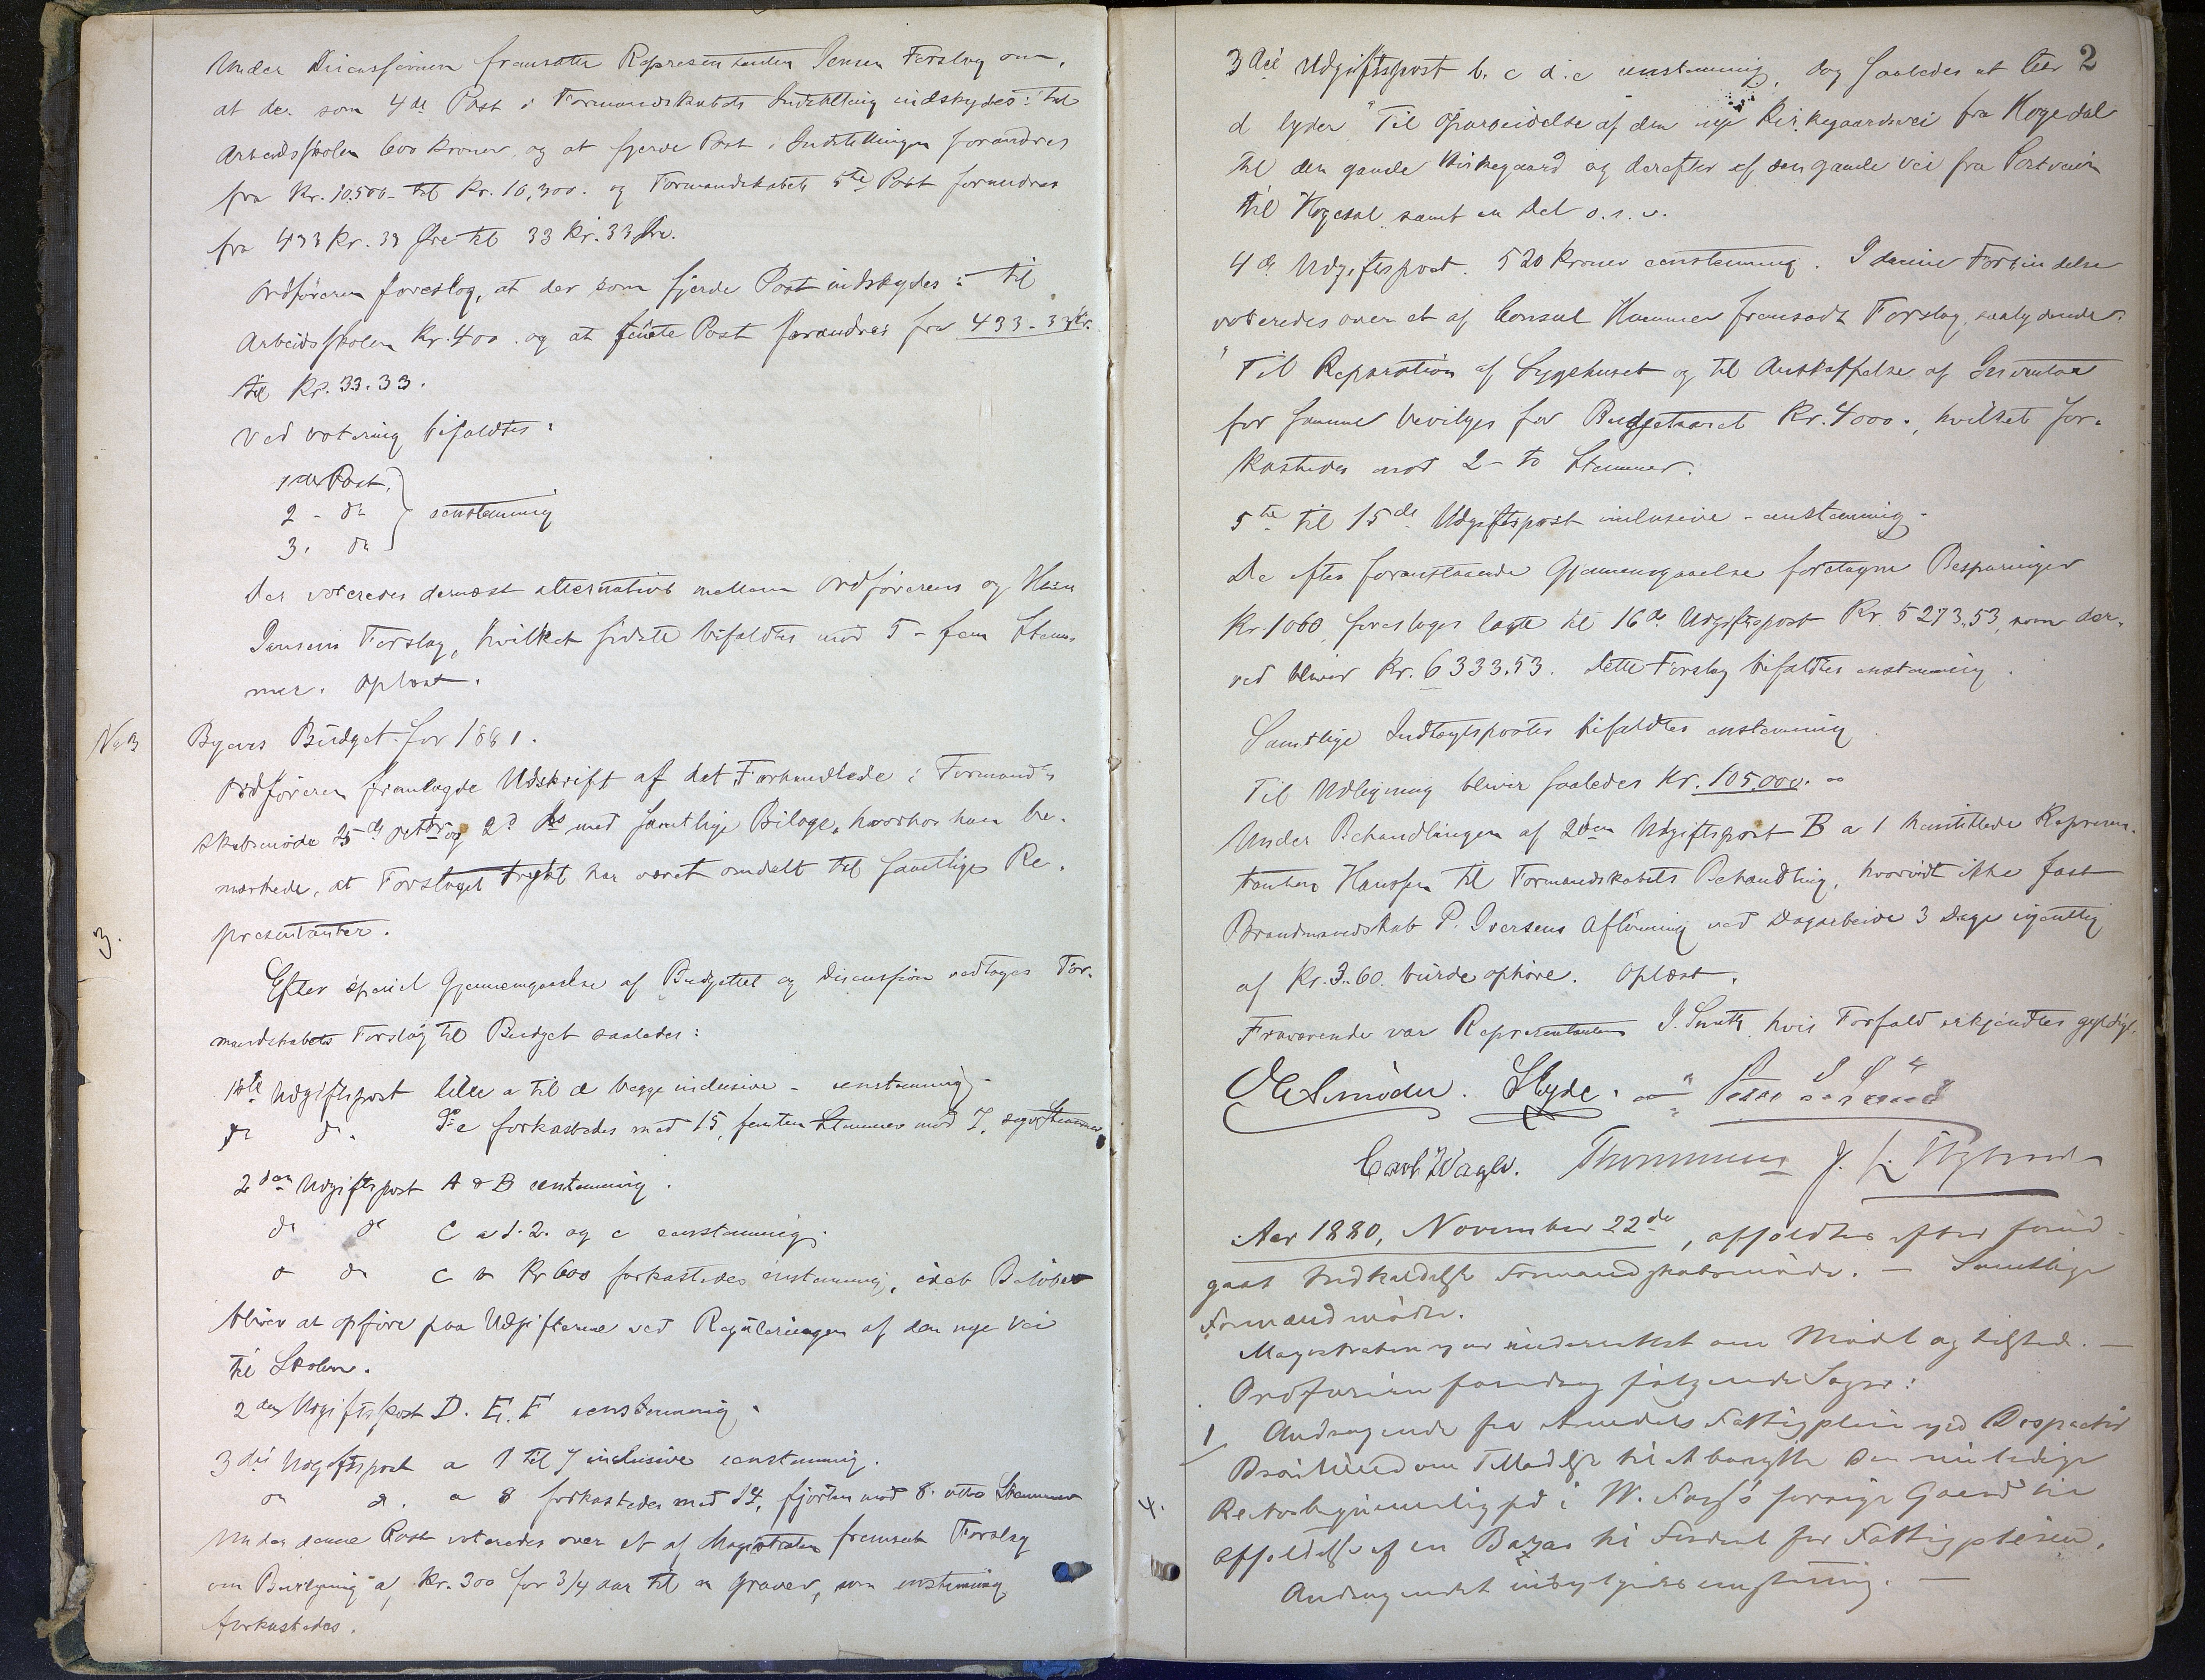 Under Discussionen fremsatte Repræsentanten Jensen Forslag om,
at der som 4de Post i Formandskabets Indstilling indskydes: "til
Arbeidsskolen 600 Kroner, og at fjerde Post i Indstillingen forandres
fra Kr. 10.500 til Kr. 10,300. og Formandskabets 5te Post forandres
fra 433 Kr. 33 Øre til 33 Kr. 33 Øre.
Ordføreren foreslog, at der som fjerde Post indskydes: til
Arbeidsskolen Kr. 400. og at femte Post forandres fra 433-33 Kr.
til Kr. 33.33.
Ved votering bifaldtes:
1ste Post.
2 - do } eenstemmig
3. do
Der voteredes dernæst alternativt mellem Ordførerens og
Jensens Forslag, hvilket sidste bifaldtes mod 5 - fem Stem-
mer. Oplæst.
No 3 Byens Budget for 1881.
Ordføreren fremlagde Udskrift af det Forhandlede i Formand-
skabsmøde 25de og 2de ds med samtlige Bilage, hvorhos han be-
mærkede, at Forslaget trykt har været omdelt til samtlige Re-
3. præsentanter.
Efter speciel Gjennemgaaelse af Budgettet og Discussion vedtages For-
mandskabets Forslag til Budget saaledes:
1ste Udgiftspost litr a til d begge inclusive - eenstemmig -
do do. e forkastedes med 15, femten Stemmer mod 7, syv Stemmer
2den Udgiftspost A & B eenstemmig.
do do C a 1. 2. og c eenstemmig.
do do C b Kr 600 forkastedes enstemmig, idet Beløbet
bliver at opføre paa Udgifterne ved Reguleringen af den nye Vei
til Skolen.
2den Udgiftspost D. E. F eenstemmig.
3die Udgiftspost a 1 til 7 inclusive eenstemmig.
do do. a 8 forkastedes med 14, fjorten mod 8. otte Stemmer
Under denne Post voteredes over et af Magistraten fremsat Forslag
om Bevilgning a, Kr. 300 for 3/4 aar til en Graver, som enstemmig
forkastedes.
2
3die Udgiftspost b. c d. e enstemmig, dog saaledes at litr
d lyder "Til Oparbeidelse af den nye Kirkegaardsvei fra Høgedal
til den gamle Kirkegaard og derefter af den gamle Vei fra Postveien
til Høgedal samt en Del o. s. v.
4de Udgiftspost. 520 Kroner eenstemmig. I denne Forbindelse
voteredes over et af Consul Hammer fremsadt Forslag, saalydende:
"Til Reparation af Sygehuset og til Anskaffelse af Inventar
for samme bevilges for Budgetaaret Kr. 4000., hvilket for-
kastedes mod 2 - to Stemmer.
5te til 15de Udgiftspost inclusive - enstemmig -
De efter foranstaaende Gjennemgaaelse foretagne Besparinger
Kr. 1060, foreslages lagte til 16de Udgiftspost Kr. 5273,53, som der-
ved bliver Kr. 6333.53. Dette Forslag bifaldtes enstemmig.
Samtlige Indtægtsposter bifaldtes enstemmig.
Til Udligning bliver saaledes Kr. 105,000.
Under Behandlingen af 2den Udgiftspost B a 1 henstillede Repræsen-
tanten Hanssen til Formandskabets Behandling, hvorvidt ikke fast
Brandmandskab P. Iversens Aflønning ved Dagarbeide 3 Dage ugentlig
af Kr. 3.60. burde ophøre. Oplæst.
Fraværende var Repræsentanten J. Smith, hvis Forfald erkjendtes gyldigt.
Carl Wagle. Thommesen
Aar 1880, November 22de, afholdtes efter forud-
gaaet Indkaldelse Formandskabsmøde. - Samtlige
Formænd mødte.
Magistraten var underrettet om Mødet og tilstede. -
Ordføreren foredrog følgende Sager:
1 Andragende fra Arendals Fattigpleie ved
om Tilladelse til at benytte den nu ledige
4. i W. Gaard til
Afholdelse af en Bazar til Fordel for Fattigpleien.
Andragendet enstemmig. -